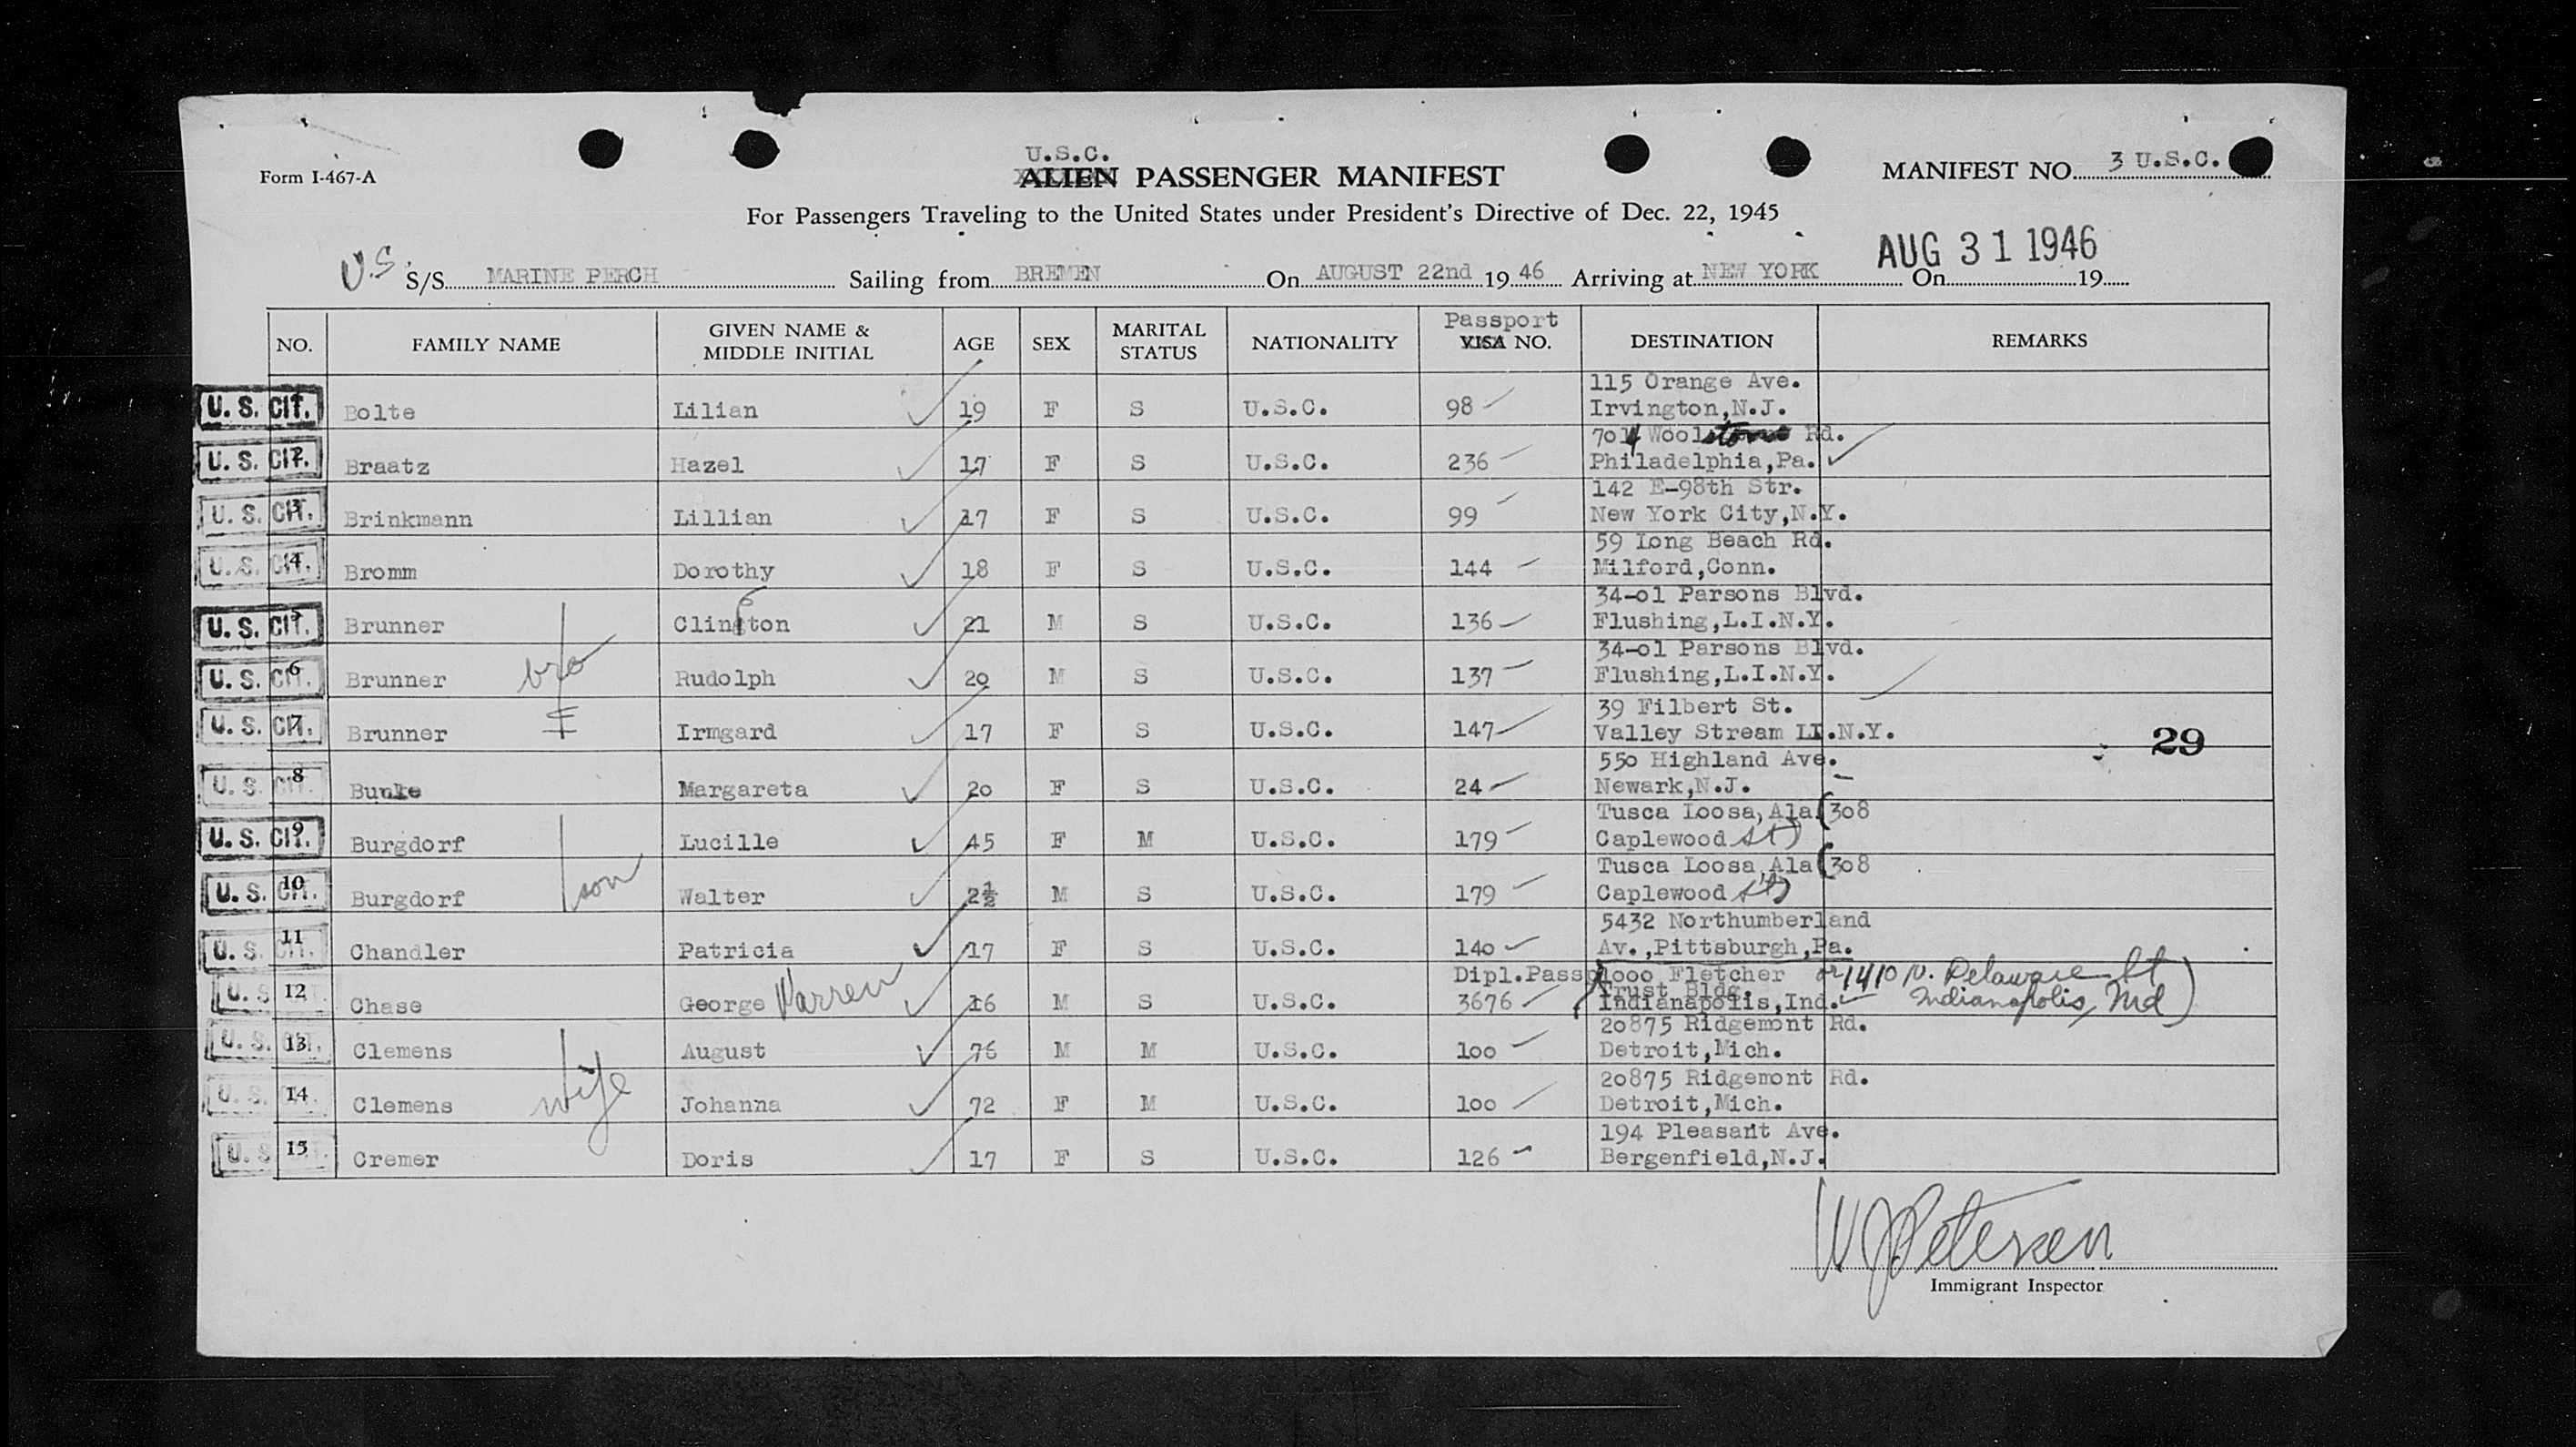 Form I-467-A
U.S.C.
ALIEN PASSENGER MANIFEST
MANIFEST NO. 3 U.S.C.
For Passengers Traveling to the United States under President's Directive of Dec. 22, 1945
AUG 31 1946
U.S. S/S MARINE PERCH Sailing from BREMEN On AUGUST 22nd 19 46 Arriving at NEW YORK On 19
NO. FAMILY NAME GIVEN NAME & MIDDLE INITIAL AGE SEX MARITAL STATUS NATIONALITY Passport VISA NO. DESTINATION REMARKS
115 Orange Ave.
U. S. CIT. 1 Bolte Lilian 19 F S U.S.C. 98 Irvington,N.J.
7014 Rd.
U. S. CIT. 2 Braatz Hazel 17 F S U.S.C. 236 Philadelphia,Pa.
142 E-98th Str.
U. S. CIT. 3 Brinkmann Lillian 17 F S U.S.C. 99 New York City,N.Y.
59 Long Beach Rd.
U. S. CIT. 4 Bromm Dorothy 18 F S U.S.C. 144 Milford,Conn.
34-01 Parsons Blvd.
U. S. CIT. 5 Brunner Clinton 21 M S U.S.C. 136 Flushing,L.I.N.Y.
34-01 Parsons Blvd.
U. S. CIT. 6 Brunner bro Rudolph 20 M S U.S.C. 137 Flushing,L.I.N.Y.
39 Filbert St.
U. S. CIT. 7 Brunner Irmgard 17 F S U.S.C. 147 Valley Stream LI.N.Y.
29
550 Highland Ave.
U. S. CIT. 8 Bunke Margareta 20 F S U.S.C. 24 Newark,N.J.
Tusca Loosa,Ala (308
U. S. CIT. 9 Burgdorf Lucille 45 F M U.S.C. 179 Caplewood St)
Tusca Loosa,Ala (308
U. S. CIT. 10 Burgdorf son Walter 2½ M S U.S.C. 179 Caplewood St)
5432 Northumberland
U. S. CIT. 11 Chandler Patricia 17 F S U.S.C. 140 Av.,Pittsburgh,Pa.
Dipl.Passp 1000 Fletcher or 1410 N. Delaware St
Trust Bldg.
U. S. 12 Chase George Warren 16 M S U.S.C. 3676 Indianapolis,Ind. Indianapolis, Ind)
20875 Ridgemont Rd.
U. S. 13 Clemens August 76 M M U.S.C. 100 Detroit,Mich.
20875 Ridgemont Rd.
U. S. 14 Clemens wife Johanna 72 F M U.S.C. 100 Detroit,Mich.
194 Pleasant Ave.
U. S. 15 Cremer Doris 17 F S U.S.C. 126 Bergenfield,N.J.
W J Petersen
Immigrant Inspector